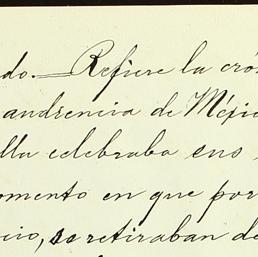 do.—Refiere la cró
audiencia de Méxic
lla celebraba sus
omento en que por
cio, se retiraban de